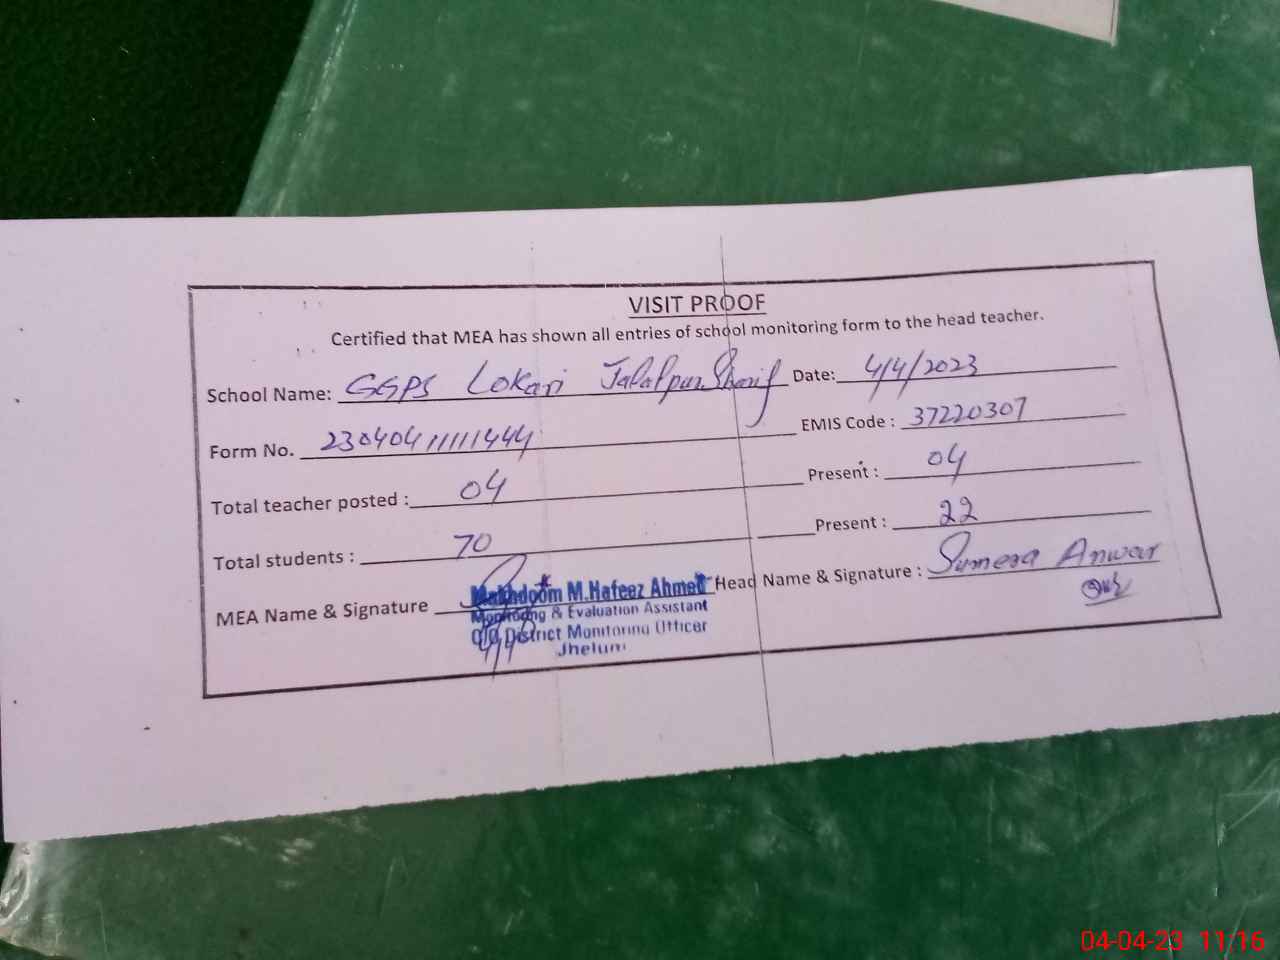 VISIT PROOF
Certified that MEA has shown all entries of school monitoring form to the head teacher.
School Name: GGPS Lokari Jalalpur Sharif Date: 4/4/2023
Form No. 23040411111444 EMIS Code : 37220307
Total teacher posted : 04 Present : 04
Total students : 70 Present : 22
MEA Name & Signature Makhdoom M.Hafeez Ahmed Head Name & Signature : Sumera Anwar
Monitoring & Evaluation Assistant
O/O District Monitoring Officer
Jhelum
04-04-23 11:16